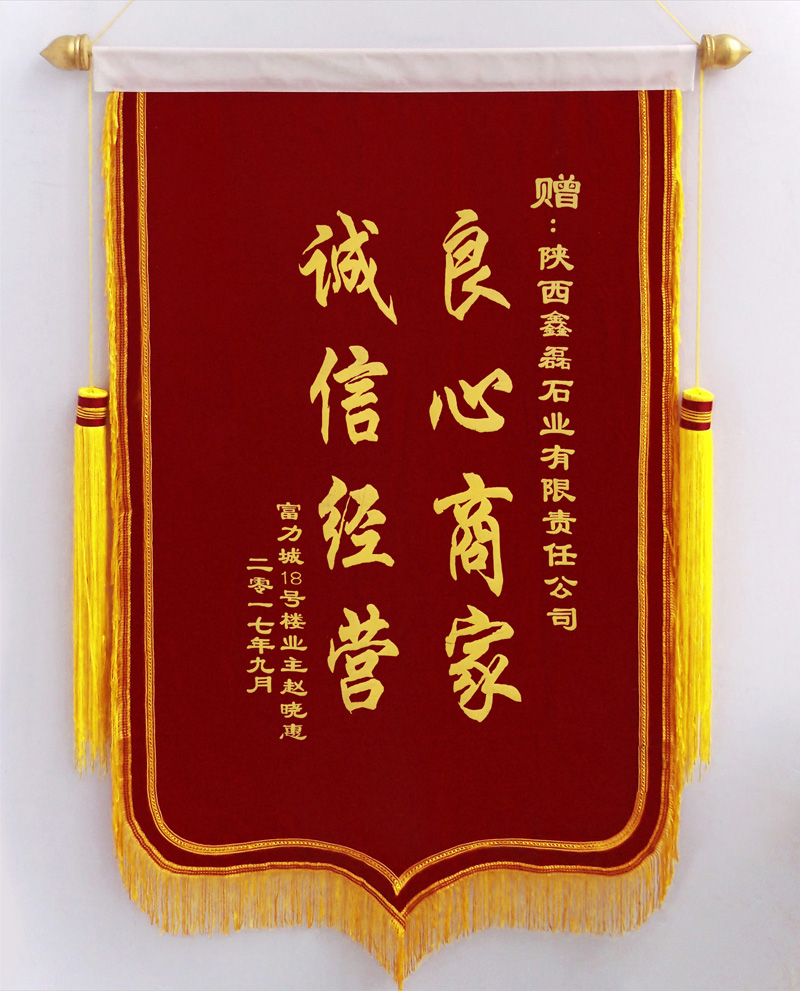 赠：陕西鑫磊石业有限责任公司
良心商家
诚信经营
富力城18号楼业主赵晓惠
二零一七年九月